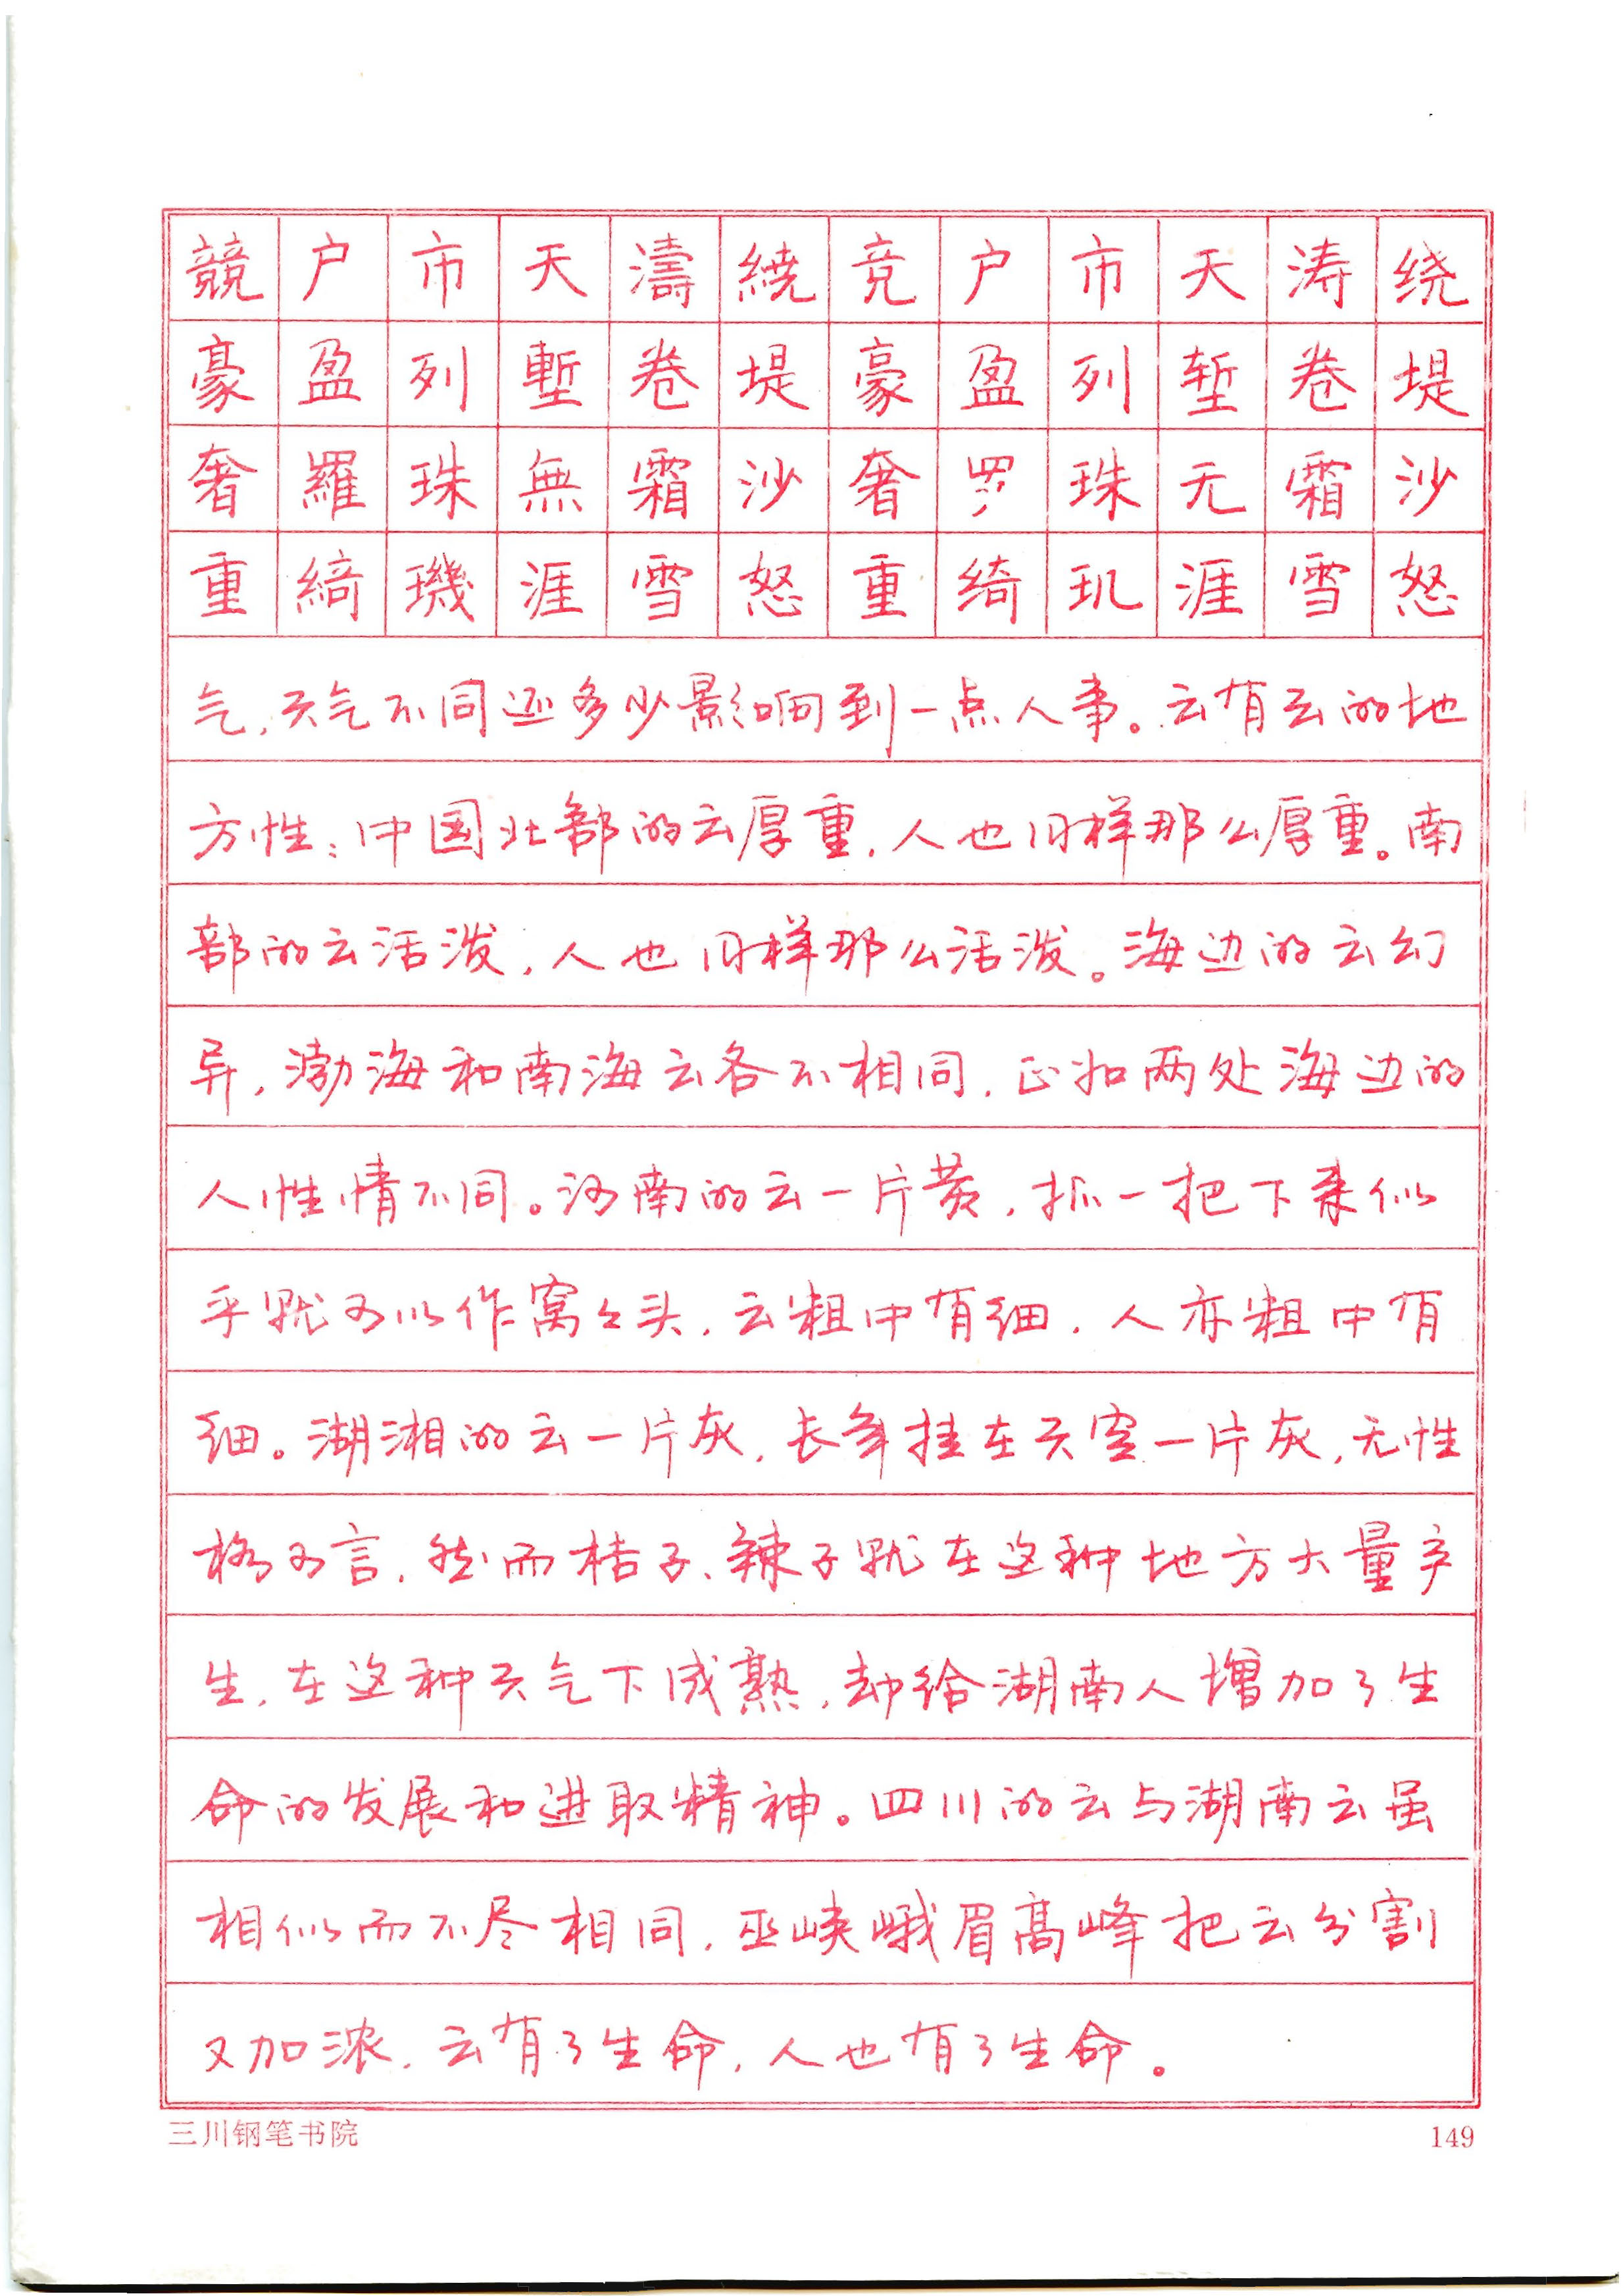 绕堤沙怒
涛卷霜雪
天堑无涯
市列珠玑
户盈罗绮
竞豪奢重
繞堤沙怒
濤卷霜雪
天塹無涯
市列珠璣
户盈羅綺
競豪奢重
气，天气不同还多少影响到一点人事。云有云的地
方性：中国北部的云厚重，人也同样那么厚重。南
部的云活泼，人也同样那么活泼。海边的云幻
异，渤海和南海云各不相同，正如两处海边的
人性情不同。河南的云一片黄，抓一把下来似
乎就可以作窝々头，云粗中有细，人亦粗中有
细。湖湘的云一片灰，长年挂在天空一片灰，无性
格可言，然而桔子、辣子就在这种地方大量产
生，在这种天气下成熟，却给湖南人增加了生
命的发展和进取精神。四川的云与湖南云虽
相似而不尽相同，巫峡峨眉高峰把云分割
又加浓，云有了生命，人也有了生命。
三川钢笔书院
149